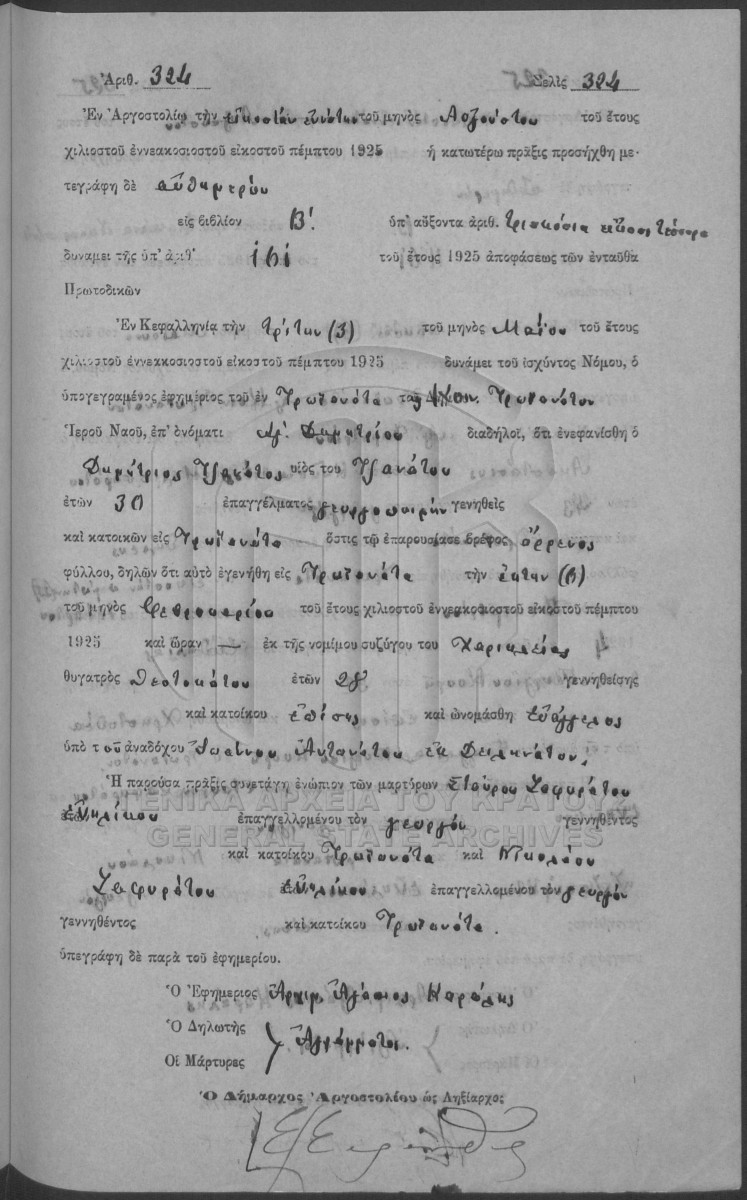 Ἀριθ. 324 Σελὶς 324
Ἐν Ἀργοστολίῳ τὴν εἰκοστὴν ἐνάτην τοῦ μηνὸς Αὐγούστου τοῦ ἔτους
χιλιοστοῦ ἐννεακοσιοστοῦ εἰκοστοῦ πέμπτου 1925 ἡ κατωτέρω πρᾶξις προσήχθη με-
τεγράφη δὲ αὐθημερόν
εἰς βιβλίον Β΄. ὑπ' αὔξοντα ἀριθ. τριακόσια εἴκοσι τέσσαρα
δυνάμει τῆς ὑπ' ἀριθ' 161 τοῦ ἔτους 1925 ἀποφάσεως τῶν ἐνταῦθα
Πρωτοδικῶν
Ἐν Κεφαλληνίᾳ τὴν τρίτην (3) τοῦ μηνὸς Μαΐου τοῦ ἔτους
χιλιοστοῦ ἐννεακοσιοστοῦ εἰκοστοῦ πέμπτου 1925 δυνάμει τοῦ ἰσχύντος Νόμου, ὁ
ὑπογεγραμένος ἐφημέριος τοῦ ἐν Τρωϊανάτα Κοιν. Τρωϊανάτων
Ἱεροῦ Ναοῦ, ἐπ' ὀνόματι Ἁγ. Δημητρίου διαδηλοῖ, ὅτι ἐνεφανίσθη ὁ
Δημήτριος υἱὸς του
ἐτῶν 30 ἐπαγγέλματος γενηθεὶς
καὶ κατοικῶν εἰς Τρωϊανάτα ὅστις τῷ ἐπαρουσίασε βρέφος ἄρρενος
φύλλου, δηλῶν ὅτι αὐτὸ ἐγενήθη εἰς Τρωϊανάτα τὴν ἕκτην (6)
τοῦ μηνὸς Φεβρουαρίου τοῦ ἔτους χιλιοστοῦ ἐννεακοσιοστοῦ εἰκοστοῦ πέμπτου
1925 καὶ ὥραν — ἐκ τῆς νομίμου συζύγου του Χαρικλείας
θυγατρὸς Θεοτοκάτου ἐτῶν 28 γεννηθείσης
καὶ κατοίκου ἐπίσης καὶ ὠνομάσθη Εὐάγγελος
ὑπὸ τοῦ ἀναδόχου ἐκ Δειλινάτων.
Ἡ παροῦσα πρᾶξις συνετάγη ἐνώπιον τῶν μαρτύρων Σταύρου Ζαφυράτου
ἐνηλίκου ἐπαγγελλομένου τὸν γεωργόν γεννηθέντος
καὶ κατοίκου Τρωϊανάτα καὶ Νικολάου
Ζαφυράτου ἐνηλίκου ἐπαγγελλομένου τὸν γεωργόν
γεννηθέντος καὶ κατοίκου Τρωϊανάτα.
ὑπεγράφη δὲ παρὰ τοῦ ἐφημερίου.
Ὁ Ἐφημεριος Ἀρχιμ. Ἀγάπιος
Ὁ Δηλωτὴς
Ἀγράμματοι.
Οἱ Μάρτυρες
Ὁ Δήμαρχος Ἀργοστολίου ὡς Ληξίαρχος
ΓΕΝΙΚΑ ΑΡΧΕΙΑ ΤΟΥ ΚΡΑΤΟΥΣ
GENERAL STATE ARCHIVES